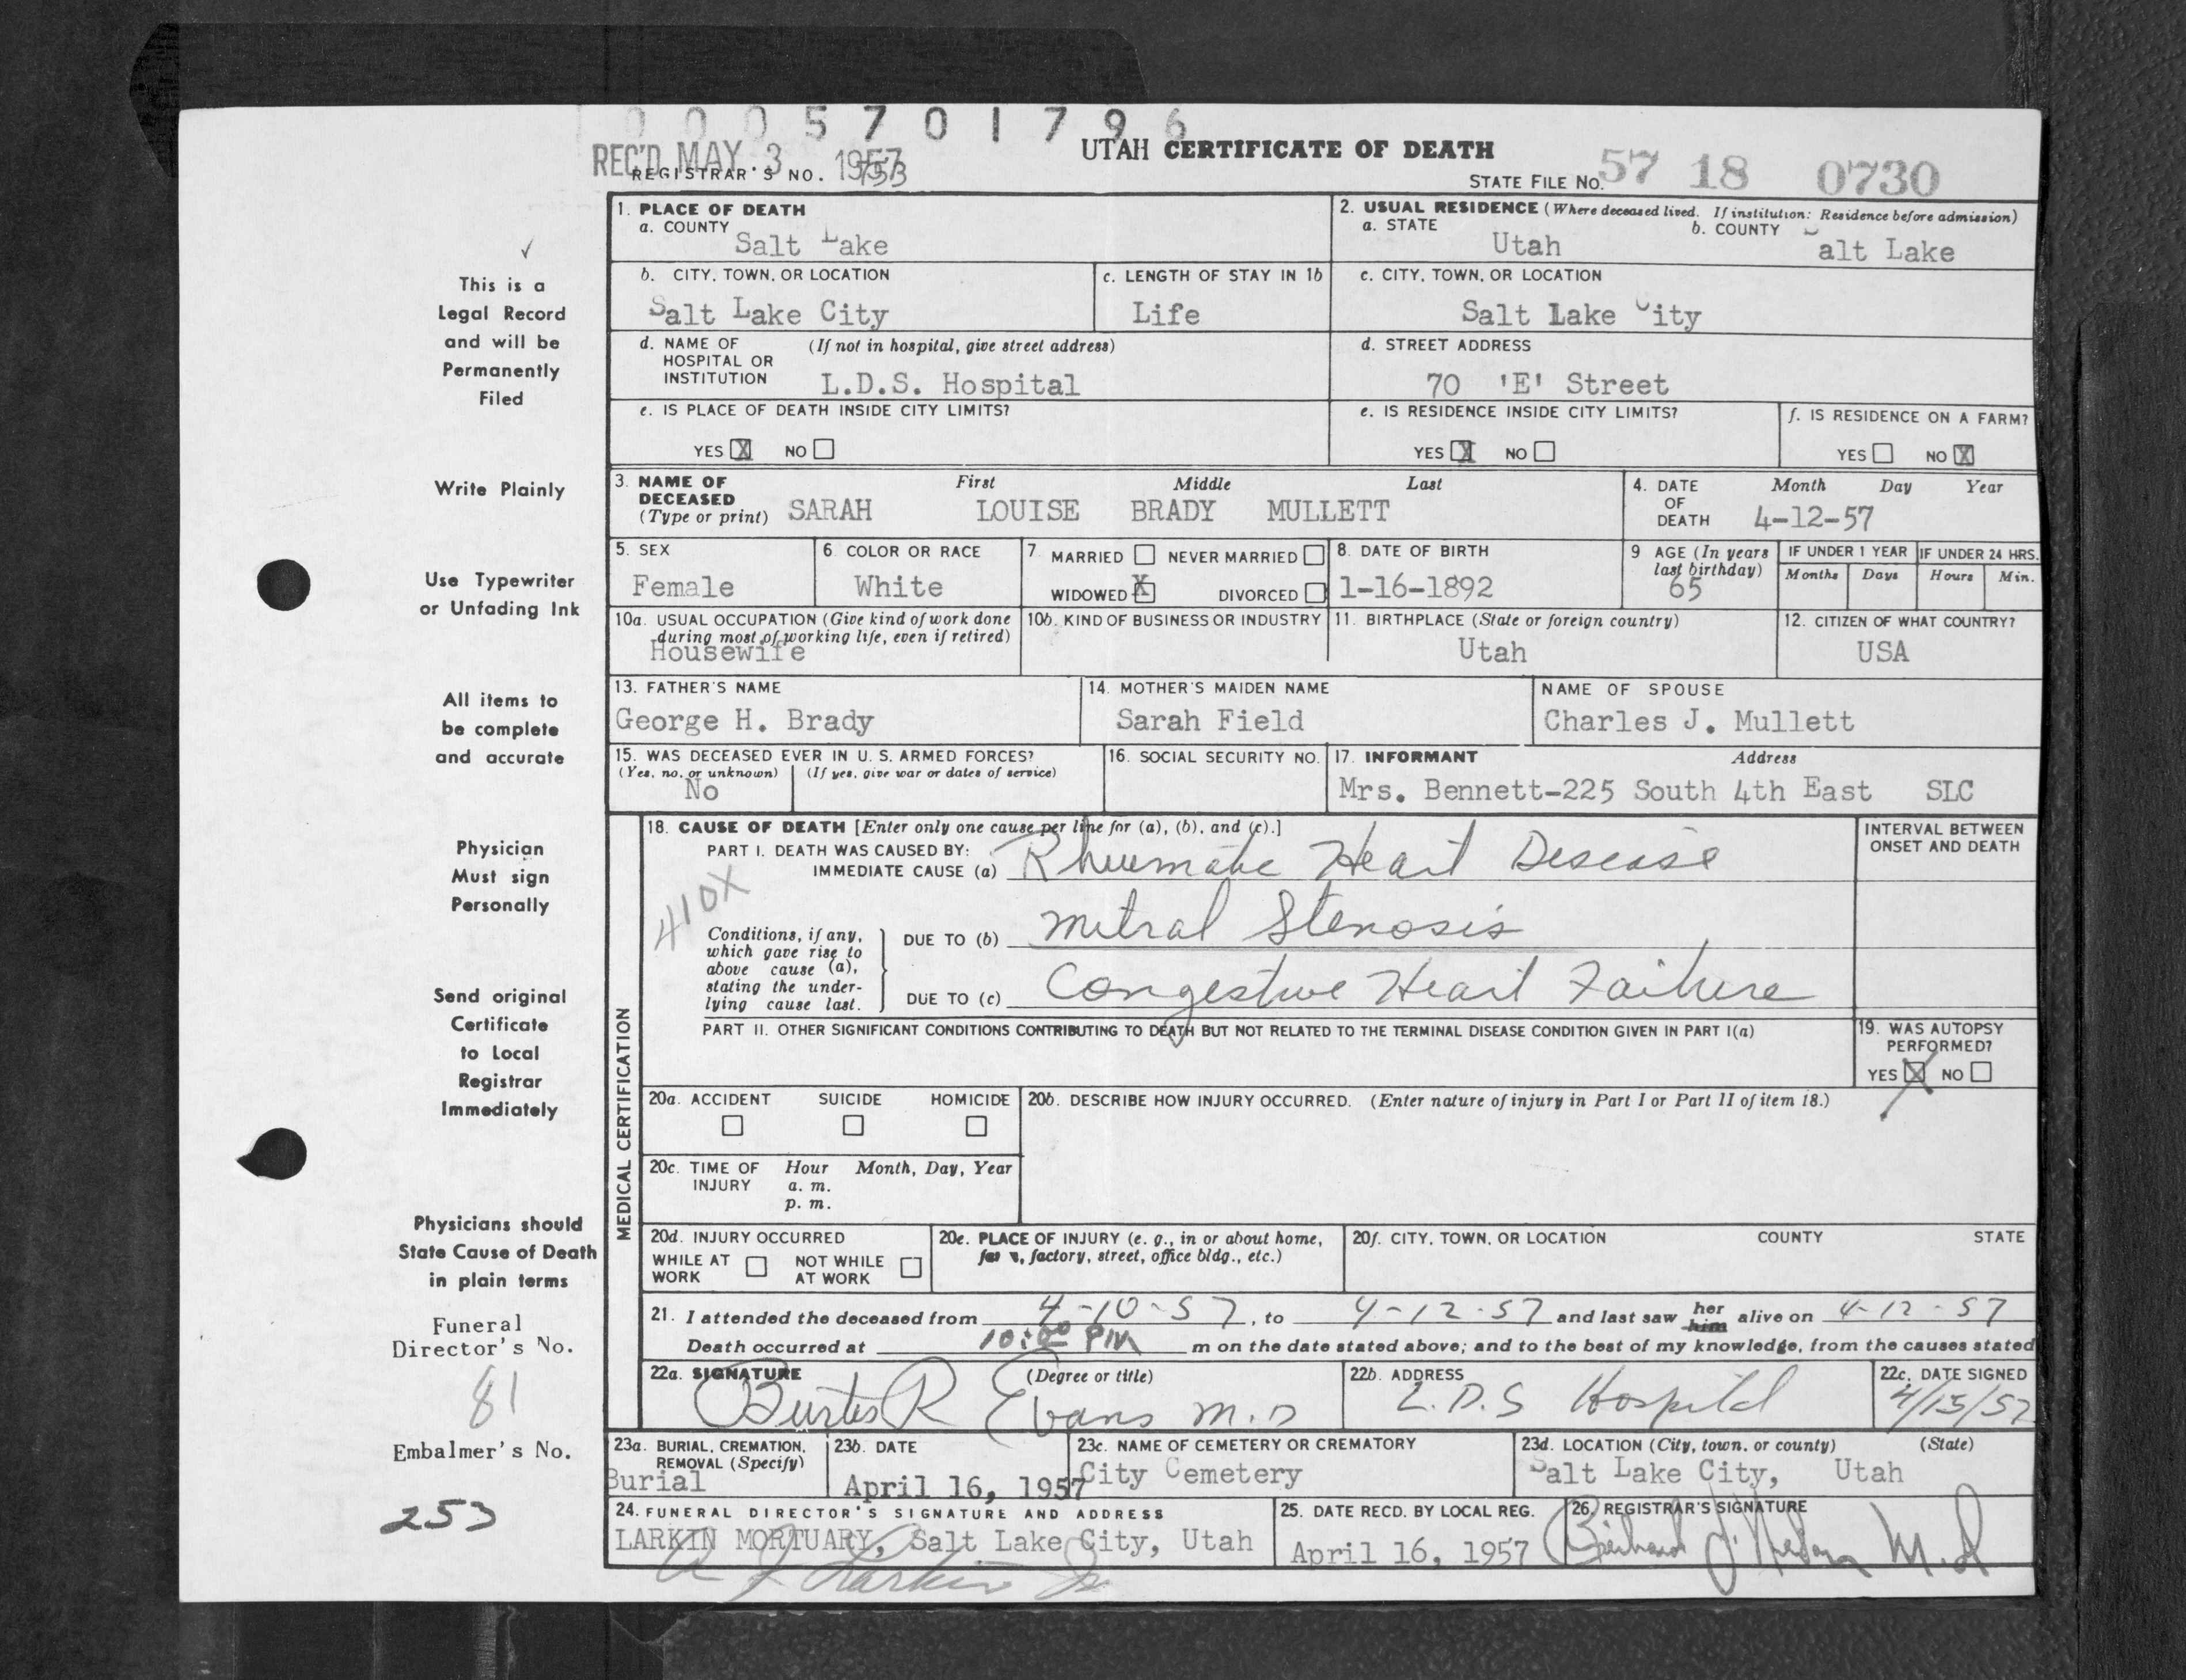 0005701796
REC'D MAY 3 1957
UTAH CERTIFICATE OF DEATH
REGISTRAR'S NO. 753
STATE FILE NO. 57 18 0730
This is a
Legal Record
and will be
Permanently
Filed
Write Plainly
Use Typewriter
or Unfading Ink
All items to
be complete
and accurate
Physician
Must sign
Personally
Send original
Certificate
to Local
Registrar
Immediately
Physicians should
State Cause of Death
in plain terms
Funeral
Director's No.
81
Embalmer's No.
253
1. PLACE OF DEATH
a. COUNTY
Salt Lake
2. USUAL RESIDENCE (Where deceased lived. If institution: Residence before admission)
a. STATE
Utah
b. COUNTY
Salt Lake
b. CITY, TOWN, OR LOCATION
Salt Lake City
c. LENGTH OF STAY IN 1b
Life
c. CITY, TOWN, OR LOCATION
Salt Lake City
d. NAME OF HOSPITAL OR INSTITUTION
(If not in hospital, give street address)
L.D.S. Hospital
d. STREET ADDRESS
70 'E' Street
e. IS PLACE OF DEATH INSIDE CITY LIMITS?
YES X NO
e. IS RESIDENCE INSIDE CITY LIMITS?
YES X NO
f. IS RESIDENCE ON A FARM?
YES NO X
3. NAME OF DECEASED (Type or print)
First Middle Last
SARAH LOUISE BRADY MULLETT
4. DATE OF DEATH
Month Day Year
4-12-57
5. SEX
Female
6. COLOR OR RACE
White
7. MARRIED NEVER MARRIED
WIDOWED X DIVORCED
8. DATE OF BIRTH
1-16-1892
9 AGE (In years last birthday)
65
IF UNDER 1 YEAR
Months Days
IF UNDER 24 HRS.
Hours Min.
10a. USUAL OCCUPATION (Give kind of work done during most of working life, even if retired)
Housewife
10b. KIND OF BUSINESS OR INDUSTRY
11. BIRTHPLACE (State or foreign country)
Utah
12. CITIZEN OF WHAT COUNTRY?
USA
13. FATHER'S NAME
George H. Brady
14. MOTHER'S MAIDEN NAME
Sarah Field
NAME OF SPOUSE
Charles J. Mullett
15. WAS DECEASED EVER IN U. S. ARMED FORCES?
(Yes, no, or unknown) (If yes, give war or dates of service)
No
16. SOCIAL SECURITY NO.
17. INFORMANT Address
Mrs. Bennett-225 South 4th East SLC
MEDICAL CERTIFICATION
18. CAUSE OF DEATH [Enter only one cause per line for (a), (b), and (c).]
INTERVAL BETWEEN
ONSET AND DEATH
PART I. DEATH WAS CAUSED BY:
IMMEDIATE CAUSE (a) Rheumatic Heart Disease
410X
Conditions, if any,
which gave rise to
above cause (a),
stating the under-
lying cause last.
DUE TO (b) Mitral Stenosis
DUE TO (c) Congestive Heart Failure
PART II. OTHER SIGNIFICANT CONDITIONS CONTRIBUTING TO DEATH BUT NOT RELATED TO THE TERMINAL DISEASE CONDITION GIVEN IN PART I(a)
19. WAS AUTOPSY
PERFORMED?
YES X NO
20a. ACCIDENT SUICIDE HOMICIDE
20b. DESCRIBE HOW INJURY OCCURRED. (Enter nature of injury in Part I or Part II of item 18.)
20c. TIME OF INJURY
Hour Month, Day, Year
a. m.
p. m.
20d. INJURY OCCURRED
WHILE AT WORK NOT WHILE AT WORK
20e. PLACE OF INJURY (e. g., in or about home,
farm, factory, street, office bldg., etc.)
20f. CITY, TOWN, OR LOCATION COUNTY STATE
21. I attended the deceased from 4-10-57, to 4-12-57 and last saw her him alive on 4-12-57
Death occurred at 10:00 PM m on the date stated above; and to the best of my knowledge, from the causes stated
22a. SIGNATURE (Degree or title)
Burtis R Evans M.D
22b. ADDRESS
L.D.S Hospital
22c. DATE SIGNED
4/15/57
23a. BURIAL, CREMATION, REMOVAL (Specify)
Burial
23b. DATE
April 16, 1957
23c. NAME OF CEMETERY OR CREMATORY
City Cemetery
23d. LOCATION (City, town, or county) (State)
Salt Lake City, Utah
24. FUNERAL DIRECTOR'S SIGNATURE AND ADDRESS
LARKIN MORTUARY, Salt Lake City, Utah
Larkin Jr
25. DATE RECD. BY LOCAL REG.
April 16, 1957
26. REGISTRAR'S SIGNATURE
M.D